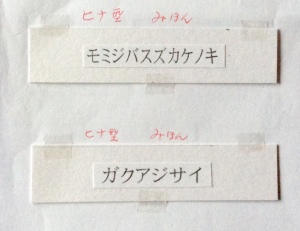 ヒナ型 みほん
モミジバスズカケノキ
ヒナ型 みほん
ガクアジサイ